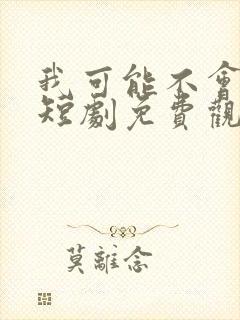 我可能不會
短劇免費觀
莫離念